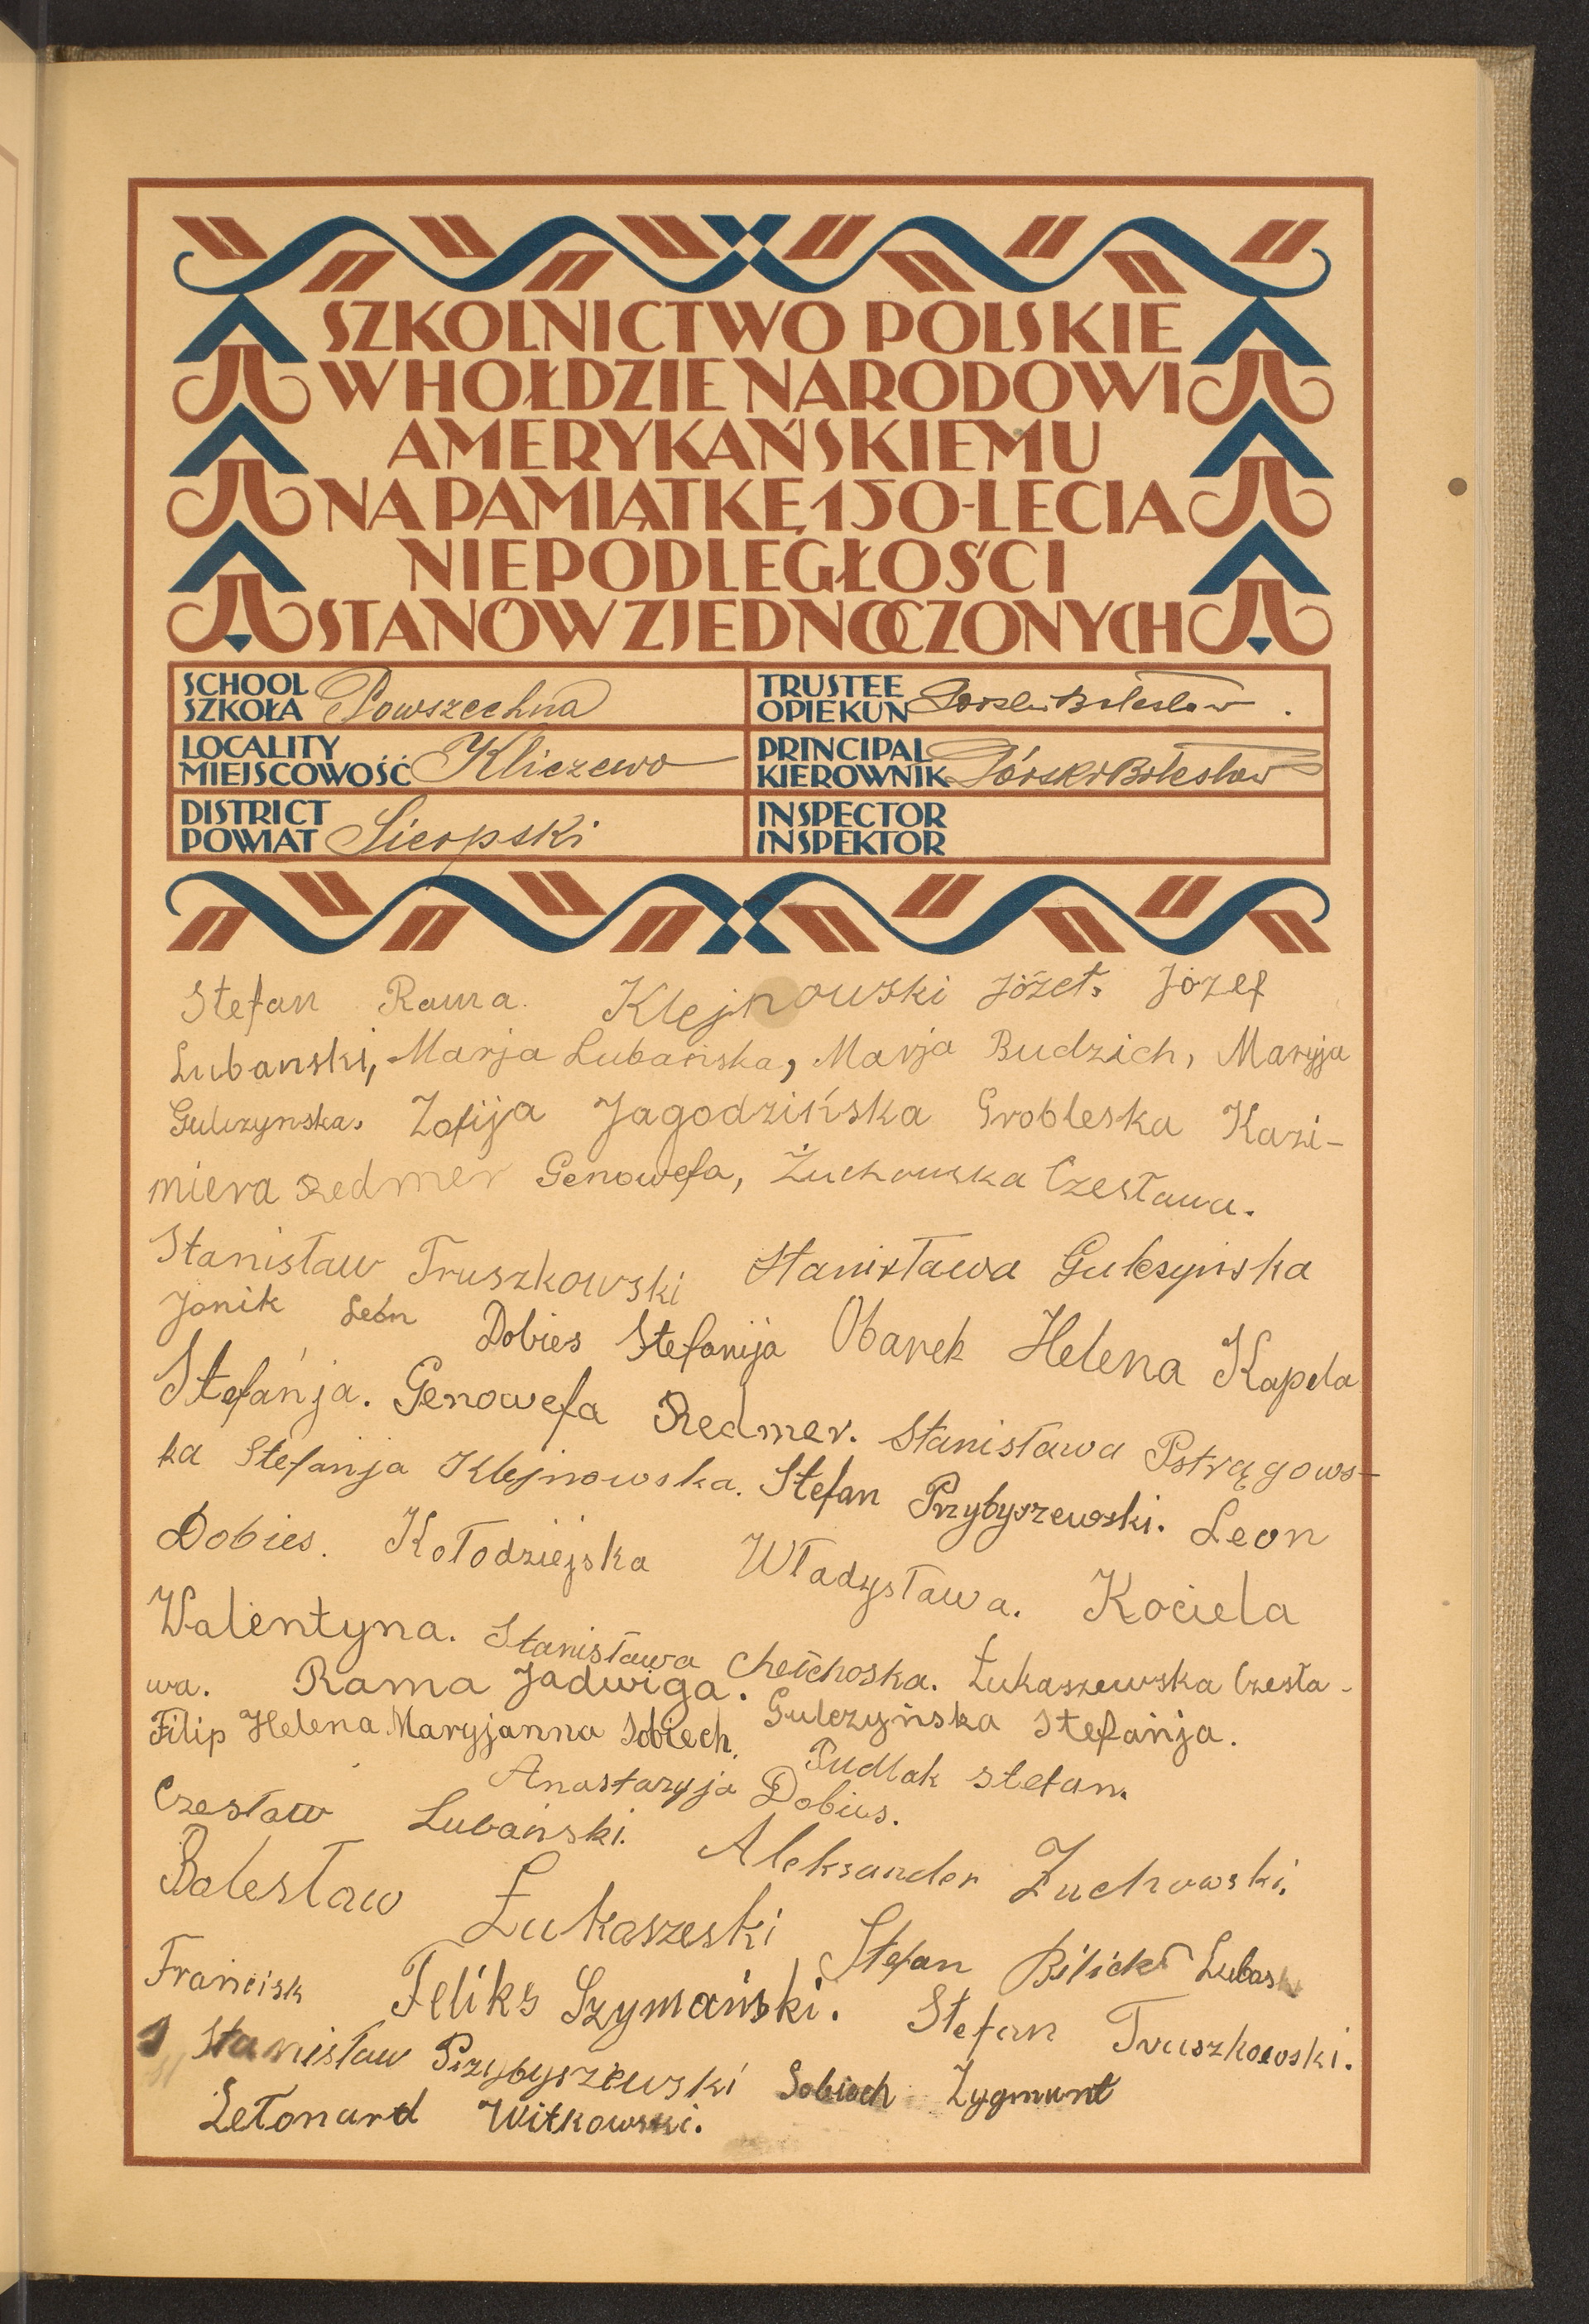 SZKOLNICTWO POLSKIE
W HOŁDZIE NARODOWI
AMERYKAŃSKIEMU
NA PAMIĄTKĘ 150-LECIA
NIEPODLEGŁOŚCI
STANÓW ZJEDNOCZONYCH
SCHOOL
SZKOŁA Powszechna
TRUSTEE
OPIEKUN Górski Bolesław.
LOCALITY
MIEJSCOWOŚĆ Kliczewo
PRINCIPAL
KIEROWNIK Górski Bolesław
DISTRICT
POWIAT Sierpski
INSPECTOR
INSPEKTOR
Stefan Rama. Klejnowski Józef. Józef
Lubanski, Marja Lubańska, Marja Budzich, Maryja
Gulczynska. Zofija Jagodzińska Grobleska Kazi-
miera Redmer Genowefa, Żuchowska Czesława.
Stanisław Truszkowski Stanisława Gulczyńska
Jonik Leon Dobies Stefanija Obarek Helena Kapela
Stefanja. Genowefa Redmer. Stanisława Pstrągows-
ka Stefanja Klejnowska. Stefan Przybyszewski. Leon
Dobies. Kołodziejska Władysława. Kociela
Walentyna. Stanisława Chełchoska. Łukaszewska Czesła-
wa. Rama Jadwiga. Gulczyńska Stefańja.
Filip Helena Maryjanna Sobiech. Pudlak stefan.
Anastazyja Dobius.
Czesław Lubański. Aleksander Żuchowski.
Bolesław Łukaszeski Stefan Bilicki Lubask
Francisk Feliks Szymański. Stefan Truszkowski.
Stanisław Przybyszewski Sobiech Zygmunt
Letonard Witkowski.